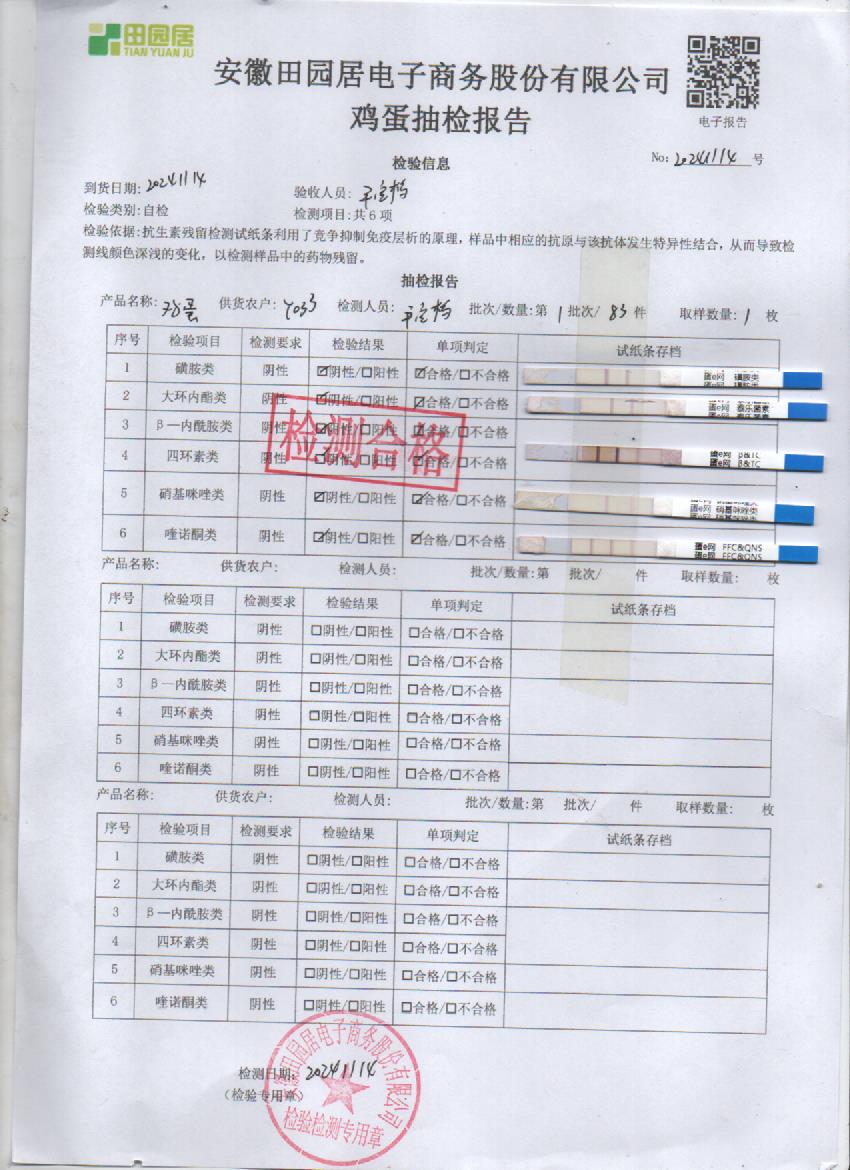 田园居
TIAN YUAN JU
安徽田园居电子商务股份有限公司
鸡蛋抽检报告
电子报告
检验信息
No: 20241114 号
到货日期: 20241114 验收人员:
检验类别:自检 检测项目:共6项
检验依据:抗生素残留检测试纸条利用了竞争抑制免疫层析的原理，样品中相应的抗原与该抗体发生特异性结合，从而导致检
测线颜色深浅的变化，以检测样品中的药物残留。
抽检报告
产品名称: 鸡蛋 供货农户: Y033 检测人员: 批次/数量:第 1 批次/ 83 件 取样数量: 1 枚
序号 检验项目 检测要求 检验结果 单项判定 试纸条存档
1 磺胺类 阴性 ☑阴性/□阳性 ☑合格/□不合格 蛋e网 磺胺类
2 大环内酯类 阴性 ☑阴性/□阳性 ☑合格/□不合格 蛋e网 泰乐菌素
3 β一内酰胺类 阴性 ☑阴性/□阳性 ☑合格/□不合格
4 四环素类 阴性 ☑阴性/□阳性 ☑合格/□不合格 蛋e网 β&TC
5 硝基咪唑类 阴性 ☑阴性/□阳性 ☑合格/□不合格 蛋e网 硝基咪唑类
6 喹诺酮类 阴性 ☑阴性/□阳性 ☑合格/□不合格 蛋e网 FFC&QNS
检测合格
产品名称: 供货农户: 检测人员: 批次/数量:第 批次/ 件 取样数量: 枚
序号 检验项目 检测要求 检验结果 单项判定 试纸条存档
1 磺胺类 阴性 □阴性/□阳性 □合格/□不合格
2 大环内酯类 阴性 □阴性/□阳性 □合格/□不合格
3 β一内酰胺类 阴性 □阴性/□阳性 □合格/□不合格
4 四环素类 阴性 □阴性/□阳性 □合格/□不合格
5 硝基咪唑类 阴性 □阴性/□阳性 □合格/□不合格
6 喹诺酮类 阴性 □阴性/□阳性 □合格/□不合格
产品名称: 供货农户: 检测人员: 批次/数量:第 批次/ 件 取样数量: 枚
序号 检验项目 检测要求 检验结果 单项判定 试纸条存档
1 磺胺类 阴性 □阴性/□阳性 □合格/□不合格
2 大环内酯类 阴性 □阴性/□阳性 □合格/□不合格
3 β一内酰胺类 阴性 □阴性/□阳性 □合格/□不合格
4 四环素类 阴性 □阴性/□阳性 □合格/□不合格
5 硝基咪唑类 阴性 □阴性/□阳性 □合格/□不合格
6 喹诺酮类 阴性 □阴性/□阳性 □合格/□不合格
检测日期: 20241114
（检验专用章）
安徽田园居电子商务股份有限公司
检验检测专用章